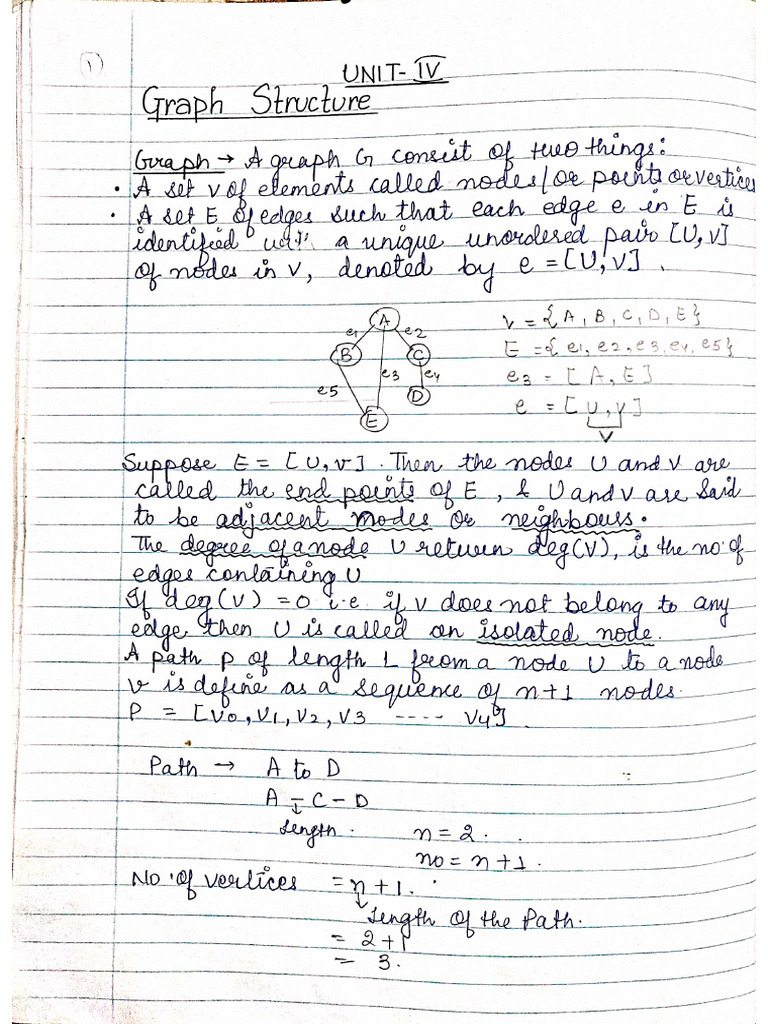 1
UNIT-IV
Graph Structure
Graph → A graph G consist of two things:
• A set V of elements called nodes/or points or vertices
• A set E of edges such that each edge e in E is
identified with a unique unordered pair [U,V]
of nodes in V, denoted by e = [U,V].
A
e1 e2
B C
e3 e4
e5 D
E
V = {A, B, C, D, E}
E = {e1, e2, e3, e4, e5}
e3 = [A, E]
e = [U, V]
V
Suppose E = [U,V]. Then the nodes U and V are
called the end points of E, & U and V are said
to be adjacent nodes or neighbours.
The degree of a node U return deg(V), is the no. of
edges containing U
If deg(V) = 0 i.e. if V does not belong to any
edge then U is called an isolated node.
A path P of length L from a node U to a node
V is define as a sequence of n+1 nodes.
P = [V0, V1, V2, V3 ---- V4].
Path → A to D
A – C – D
↓
length.
n = 2.
no = n + 1.
No. of vertices = n + 1.
↓
Length of the Path.
= 2 + 1
= 3.